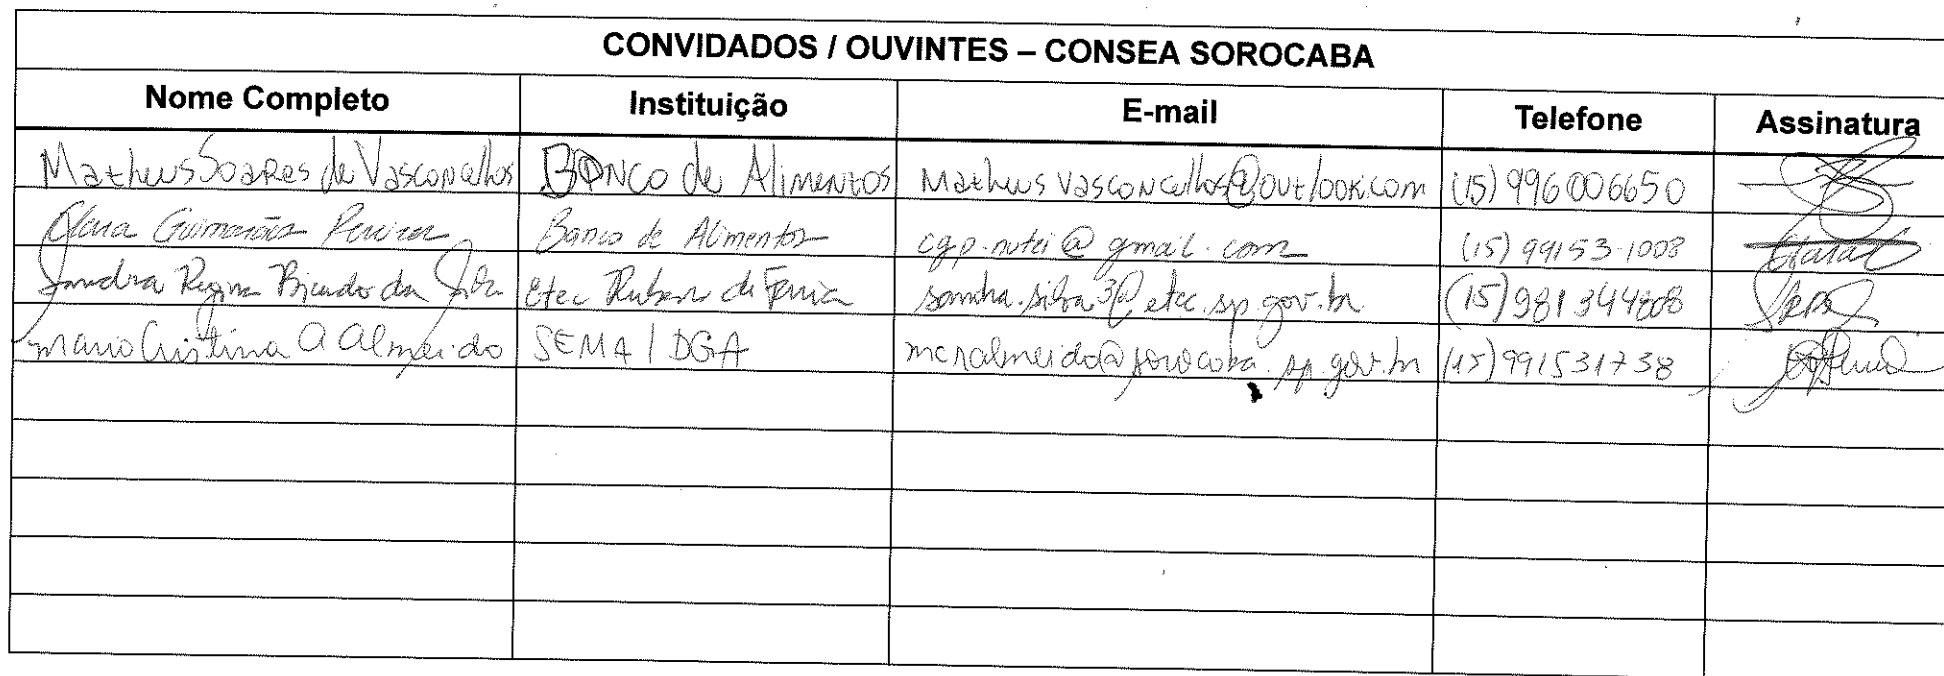 CONVIDADOS / OUVINTES – CONSEA SOROCABA
Nome Completo Instituição E-mail Telefone Assinatura
Matheus Soares de Vasconcellos Banco de Alimentos Matheusvasconcellos@outlook.com (15) 996006650
Clara Guimarães Pereira Banco de Alimentos cgp.nutri@gmail.com (15) 99153-1008 Clara
Sandra Regina da Silva Etec Rubens de Faria sandra.silva3@etec.sp.gov.br (15) 981344808
Maria Cristina A Almeida SEMA / DGA mcralmeida@sorocaba.sp.gov.br (15) 991531738